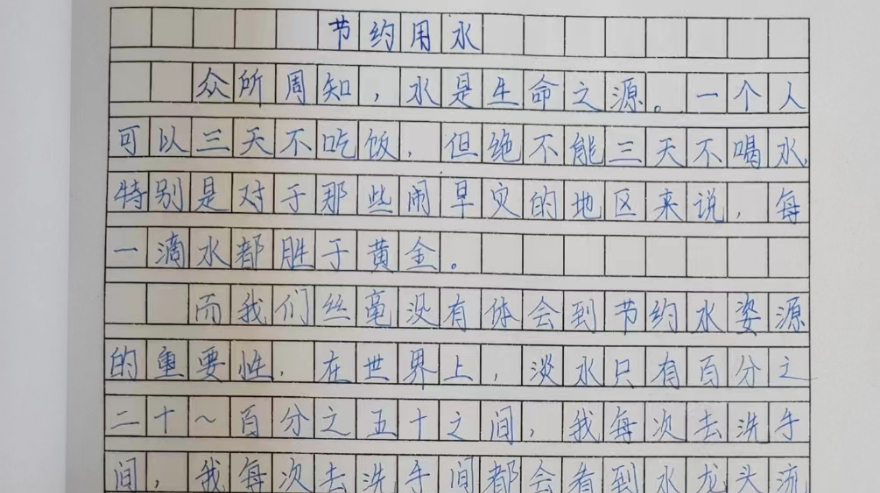 节约用水
众所周知，水是生命之源。一个人
可以三天不吃饭，但绝不能三天不喝水
特别是对于那些闹旱灾的地区来说，每
一滴水都胜于黄金。
而我们丝毫没有体会到节约水姿源
的重要性，在世界上，淡水只有百分之
二十～百分之五十之间，我每次去洗手
间，我每次去洗手间都会看到水龙头流